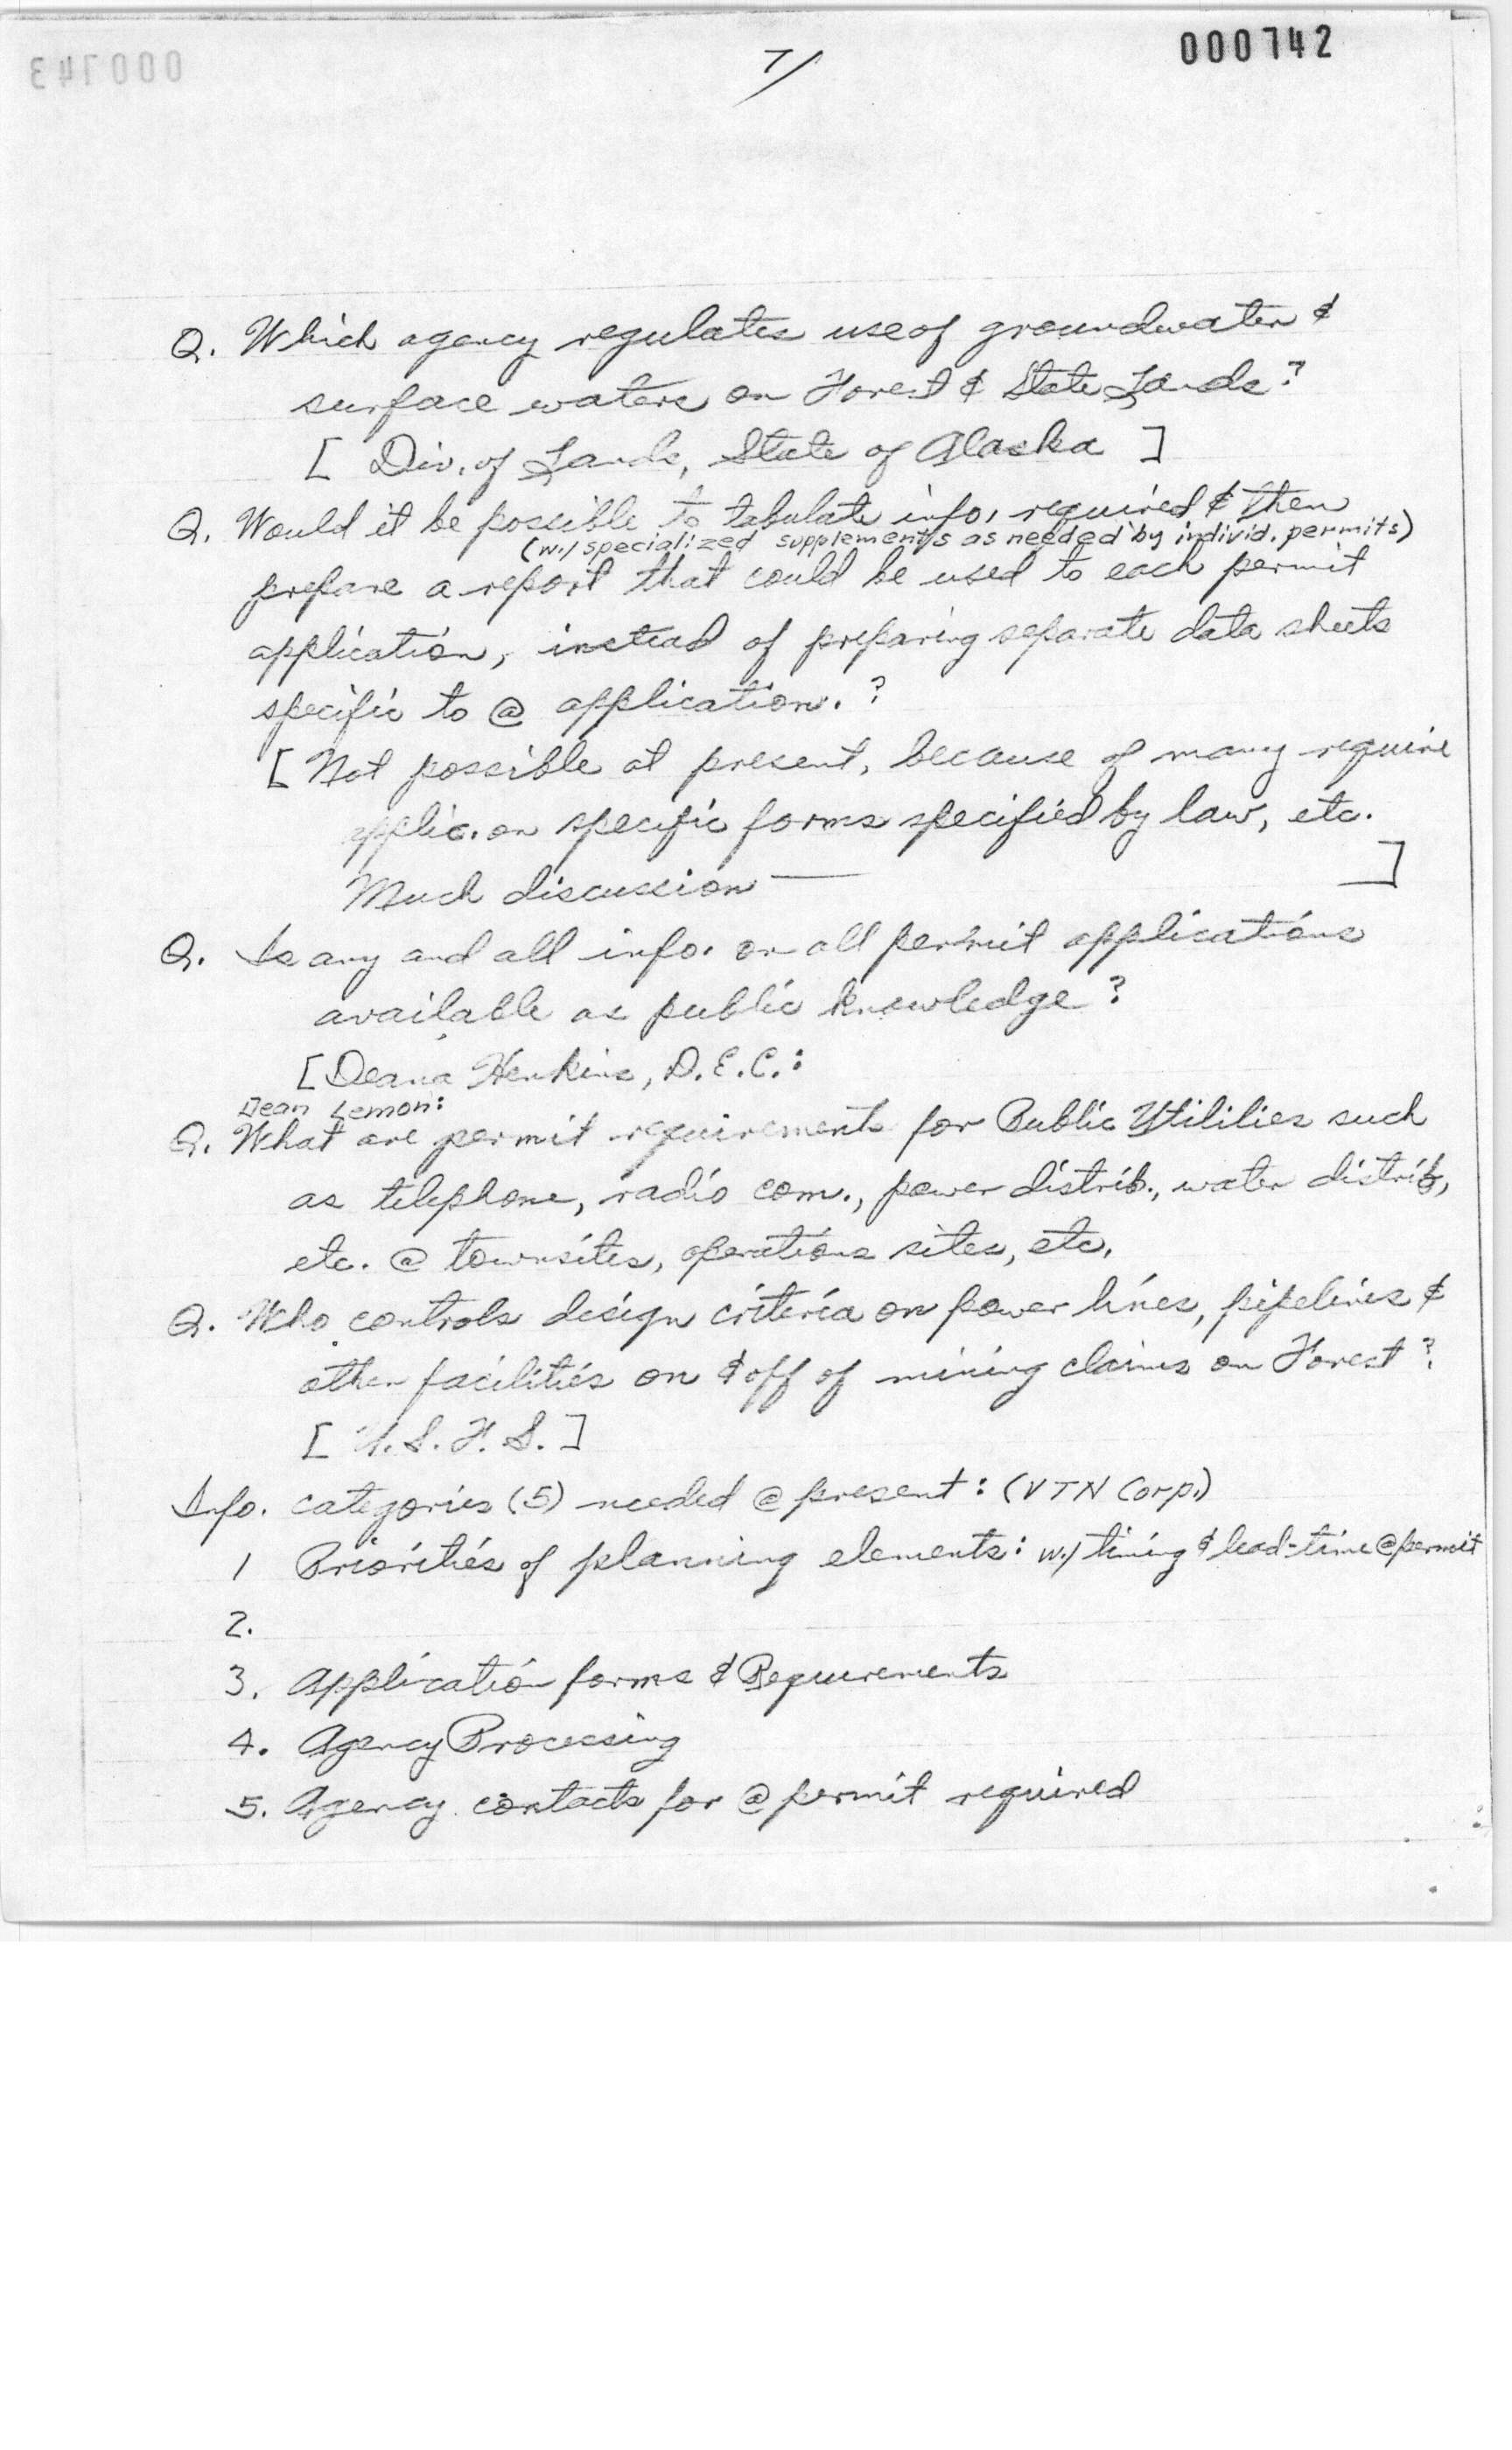 7/
000742
000743
Q. Which agency regulates use of groundwater &
surface waters on Forest & State Lands?
[ Div. of Lands, State of Alaska ]
Q. Would it be possible to tabulate info. required & then
(w./ specialized supplements as needed by individ. permits)
prepare a report that could be used to each permit
application, instead of preparing separate data sheets
specific to @ application. ?
[ Not possible at present, because of many require
applic. on specific forms specified by law, etc.
Much discussion — ]
Q. Is any and all info. on all permit applications
available as public knowledge?
[ Deana Henkins, D.E.C.:
Dean Lemon:
Q. What are permit requirements for Public Utilities such
as telephone, radio com., power distrib., water distrib,
etc. @ townsites, operations sites, etc.
Q. Who controls design criteria on power lines, pipelines &
other facilities on & off of mining claims on Forest?
[ U.S.F.S. ]
Info. categories (5) needed @ present: (VTN Corp.)
1 Priorities of planning elements: w./ timing & lead-time @ permit
2.
3. Application forms & Requirements
4. Agency Processing
5. Agency contacts for @ permit required